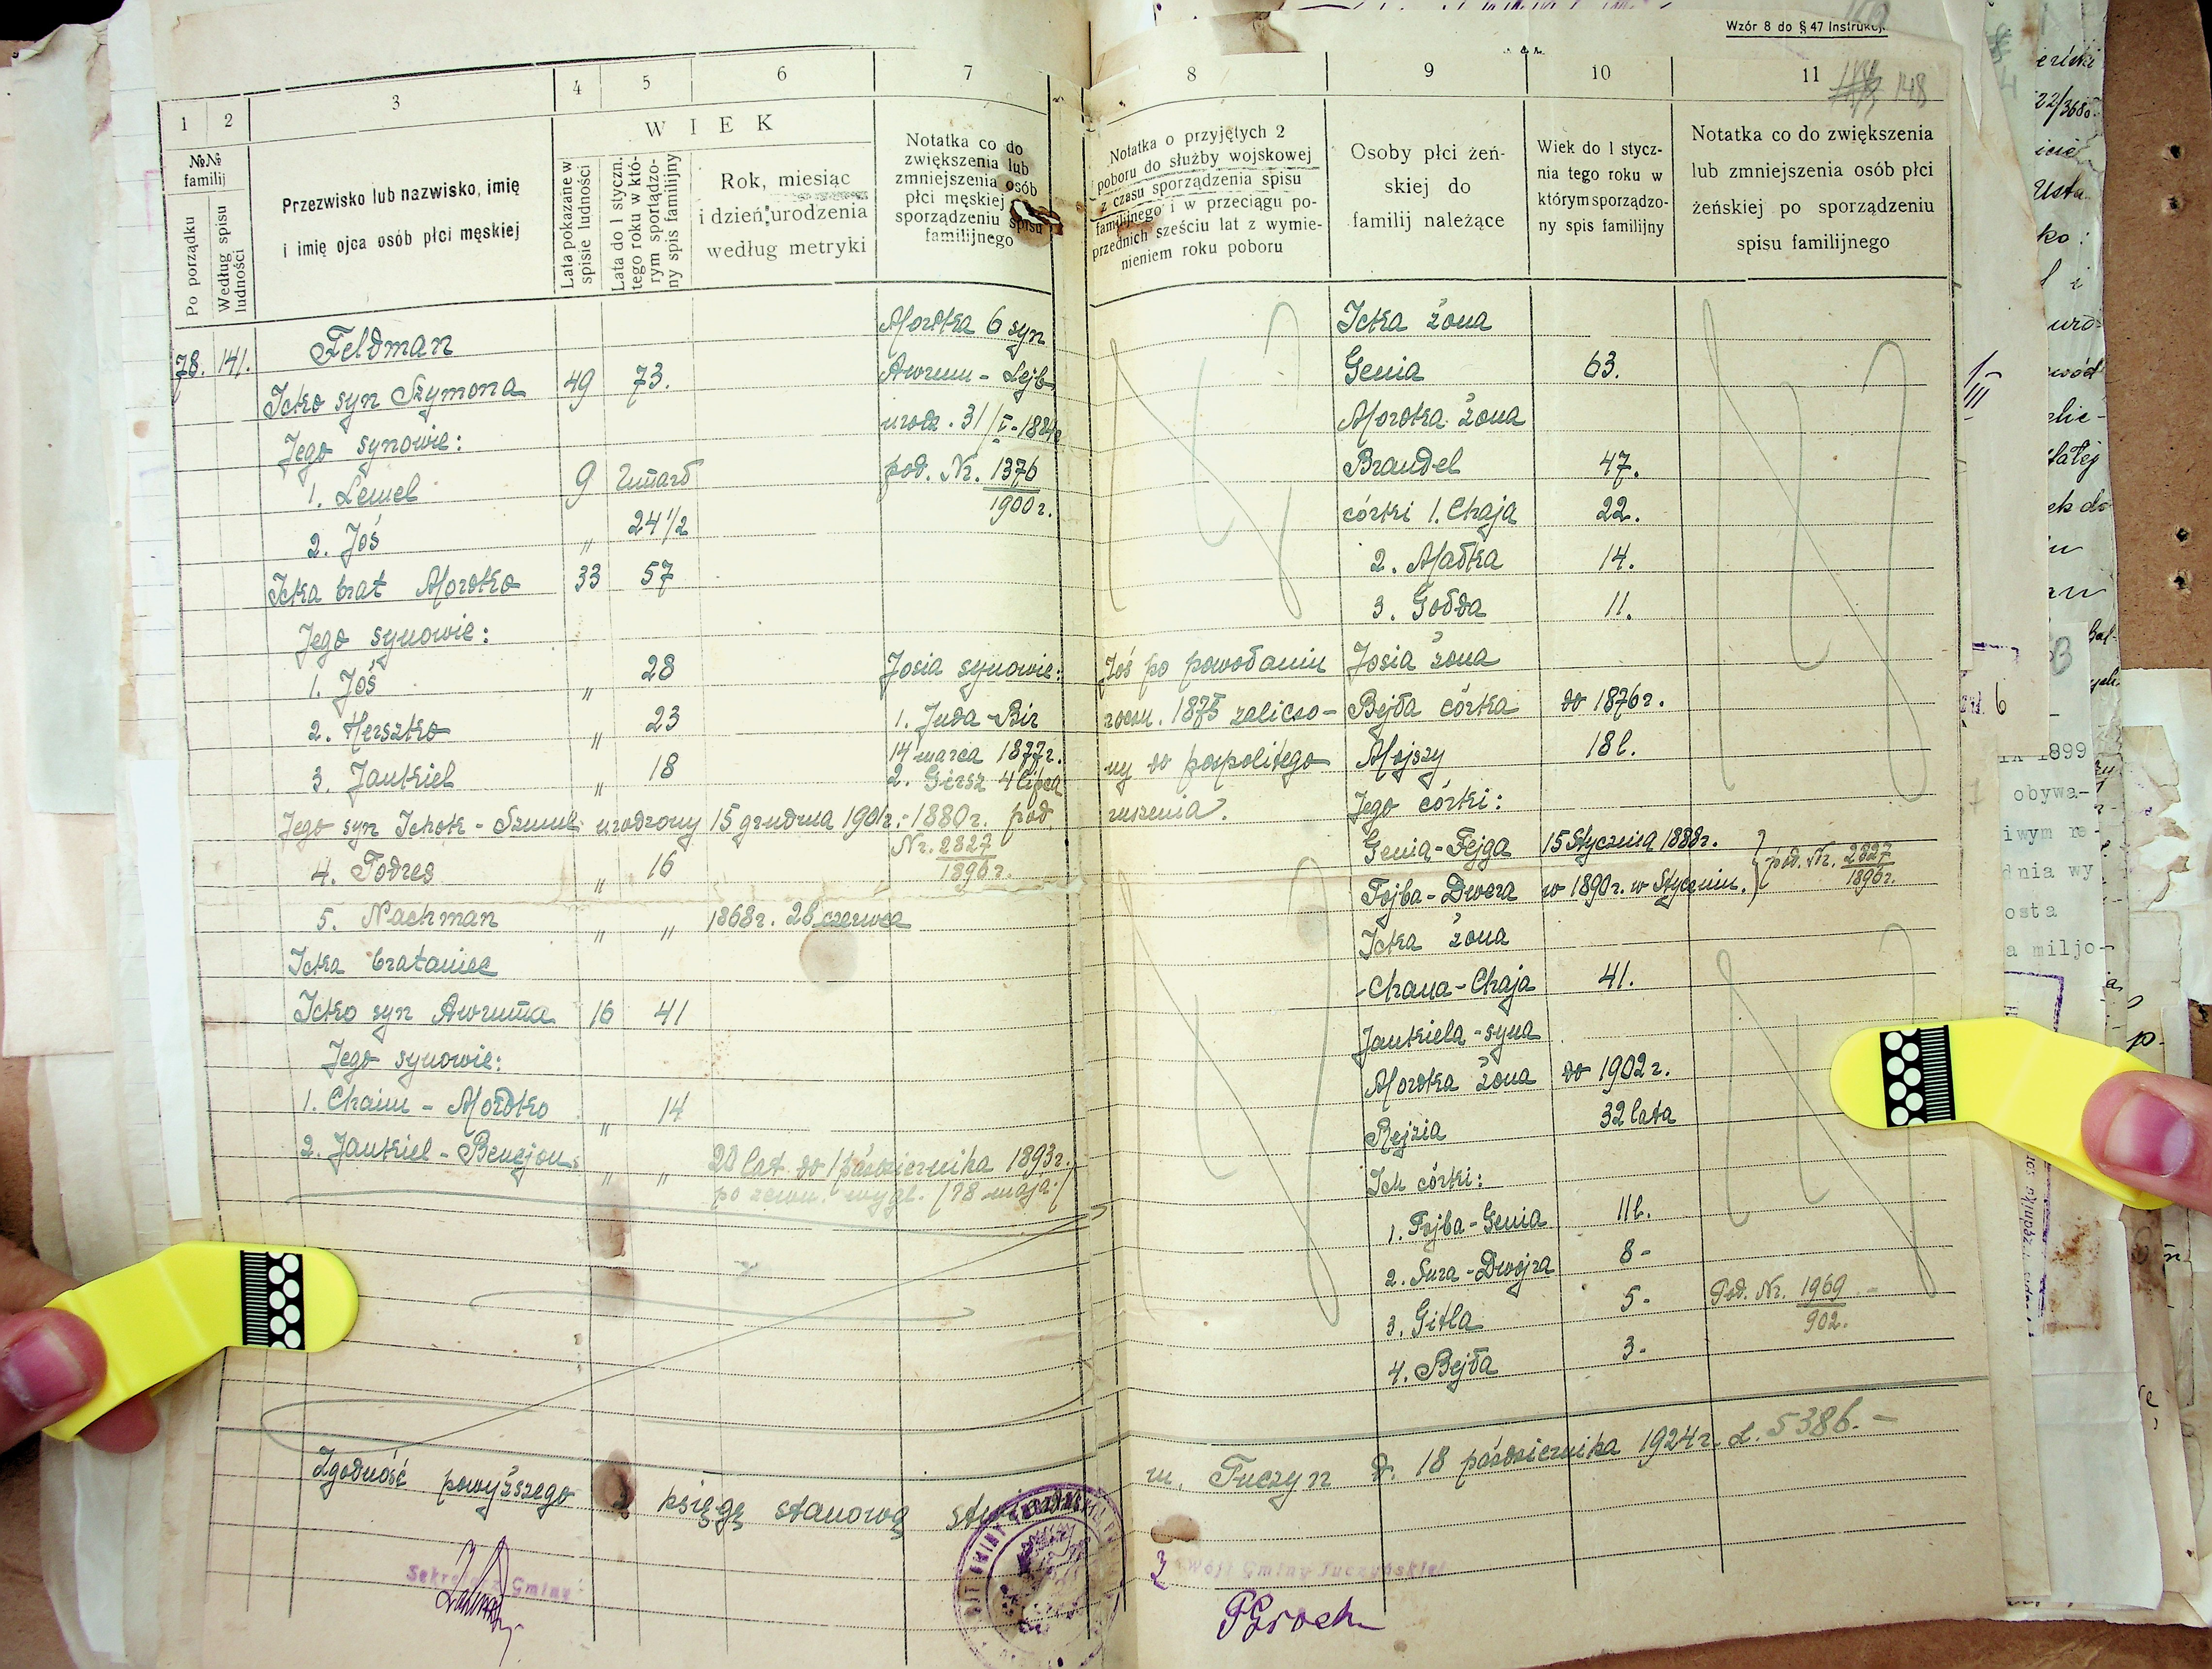 Wzór 8 do § 47 Instrukcji.
148
1
2
3
4
5
6
7
№№ familij
Po porządku
Według spisu ludności
Przezwisko lub nazwisko, imię
i imię ojca osób płci męskiej
WIEK
Lata pokazane w spisie ludności
Lata do 1 styczn. tego roku w którym sporządzony spis familijny
Rok, miesiąc
i dzień urodzenia
według metryki
Notatka co do
zwiększenia lub
zmniejszenia osób
płci męskiej
sporządzeniu spisu
familijnego
78. 141. Feldman
Icko syn Szymona 49 73.
Jego synowie:
1. Lemel 9 Zmarł
2. Joś " 24 1/2
Icka brat Mordko 33 57
Jego synowie:
1. Joś " 28
2. Herszko " 23
3. Jankiel " 18
Jego syn Ichok-Szmul urodzony 15 grudnia 1901r.
4. Fodres " 16
5. Nachman " " 1868r. 28 czerwca
Icka brataniec
Icko syn Awruma 16 41
Jego synowie:
1. Chaim-Mordko " 14
2. Jankiel-Bencjon " " 20 lat do 1 października 1893r.
po zewn. wygl. /78 maja/
Mordka 6 syn
Awrum-Lejb
urodz. 31/I-1884r
pod. Nr. 1376
1900r.
Josia synowie:
1. Juda-Bir
14 marca 1877r.
2. Giersz 4 lipca
1880r. pod
Nr. 2827
1896r.
Zgodność powyższego z księgą stanową
Sekretarz Gminy
8
9
10
11
Notatka o przyjętych z
poboru do służby wojskowej
z czasu sporządzenia spisu
familijnego i w przeciągu po-
przednich sześciu lat z wymie-
nieniem roku poboru
Osoby płci żeń-
skiej do
familij należące
Wiek do 1 stycz-
nia tego roku w
którym sporządzo-
ny spis familijny
Notatka co do zwiększenia
lub zmniejszenia osób płci
żeńskiej po sporządzeniu
spisu familijnego
Icka żona
Genia 63.
Mordka żona
Brandel 47.
córki 1. Chaja 22.
2. Małka 14.
3. Gołda 11.
Joś po powołaniu
roczn. 1875 zaliczo-
ny do pospolitego
ruszenia.
Josia żona
Bejła córka do 1876r.
Mojszy 18 l.
Jego córki:
Genia-Fejga 15 Stycznia 1888r.
Fojba-Dwora w 1890r. w Styczniu.
pod. Nr. 2827
1896r.
Icka żona
Chana-Chaja 41.
Jankiela-syna
Mordka żona do 1902r.
Rejzia 32 lata
Ich córki:
1. Fojba-Genia 11 l.
2. Sura-Dwojra 8-
3. Gitla 5-
4. Bejła 3-
Pod. Nr. 1969
902.
m. Tuczyn d. 18 października 1924r. L. 5386.-
Wójt Gminy Tuczyńskiej